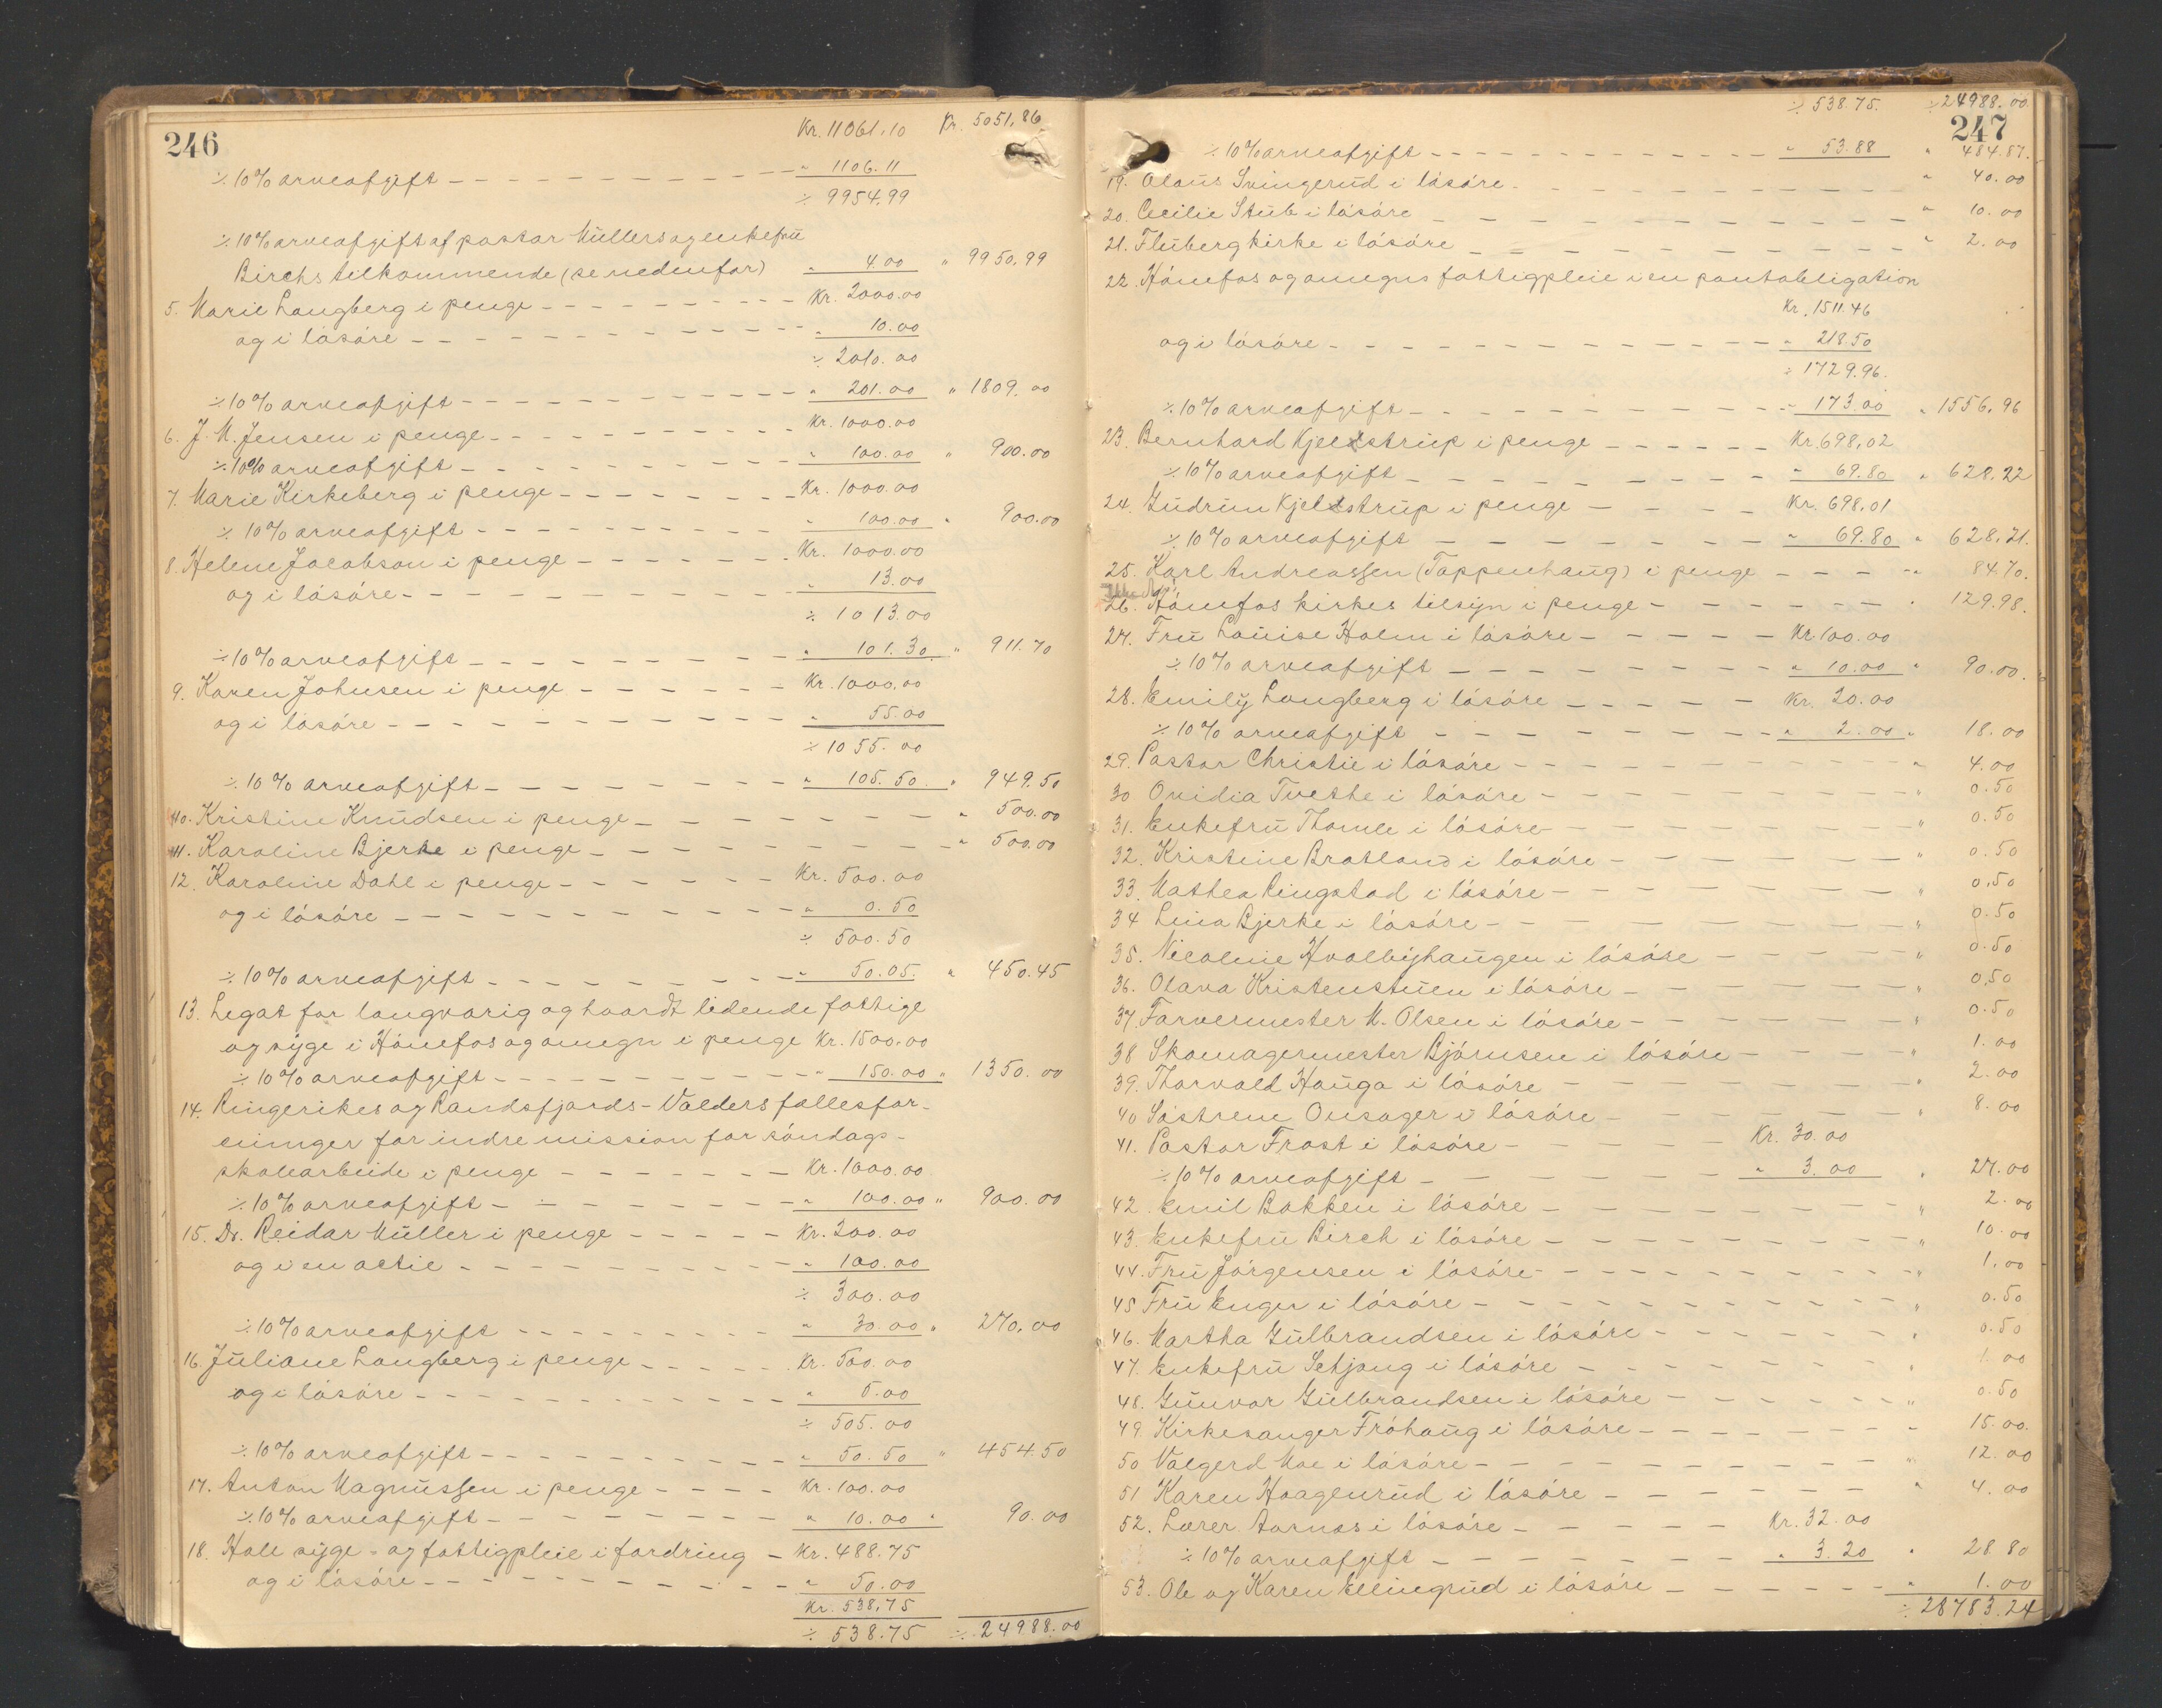 246
Kr. 11061.10 Kr. 5051.86
÷ 10% arveafgift - - - - " 1106.11
÷ 9954.99
÷ 10% arveafgift af pastor Müllers og enkefrü
Birchs tilkommende (se nedenfor) " 4.00 " 9950.99
5. Marie Langberg i penge - - - - Kr. 2000.00
og i lösöre - - - - " 10.00
÷ 2010.00
÷ 10% arveafgift - - - - " 201.00 " 1809.00
6. J. M. Jensen i penge - - - - Kr. 1000.00
÷ 10% arveafgift - - - - " 100.00 " 900.00
7. Marie Kirkeberg i penge - - - - Kr. 1000.00
÷ 10% arveafgift - - - - " 100.00 " 900.00
8. Helene Jacobson i penge - - - - Kr. 1000.00
og i lösöre - - - - " 13.00
÷ 1013.00
÷ 10% arveafgift - - - - " 101.30 " 911.70
9. Karen Johnsen i penge - - - - Kr. 1000.00
og i lösöre - - - - " 55.00
÷ 1055.00
÷ 10% arveafgift - - - - " 105.50 " 949.50
10. Kristine Knüdsen i penge - - - - " 500.00
11. Karoline Bjerke i penge - - - - " 500.00
12. Karoline Dahl i penge - - - - Kr. 500.00
og i lösöre - - - - " 0.50
÷ 500.50
÷ 10% arveafgift - - - - " 50.05. " 450.45
13. Legat for langvarig og haardt lidende fattige
og syge i Hönefos og omegn i penge Kr. 1500.00
÷ 10% arveafgift - - - - " 150.00 " 1350.00
14. Ringerikes og Randsfjords-Valders fællesfor-
eninger for indre mission for söndags-
skolearbeide i penge - - - - Kr. 1000.00
÷ 10% arveafgift - - - - " 100.00 " 900.00
15. Dr. Reidar Müller i penge - - - - Kr. 200.00
og i en actie - - - - " 100.00
÷ 300.00
÷ 10% arveafgift - - - - " 30.00 " 270.00
16. Jüliane Langberg i penge - - - - Kr. 500.00
og i lösöre - - - - " 5.00
÷ 505.00
÷ 10% arveafgift - - - - " 50.50 " 454.50
17. Anton Magnüssen i penge - - - - Kr. 100.00
÷ 10% arveafgift - - - - " 10.00 " 90.00
18. Hole syge- og fattigpleie i fordring - Kr. 488.75
og i lösöre - - - - " 50.00
Kr. 538.75
÷ 538.75 ÷ 24988.00
÷ 538.75. ÷ 24988.00
247
÷ 10% arveafgift - - - - " 53.88 " 484.87.
19. Olaüs Svingerüd i lösöre - - - - " 40.00
20. Cecilie Stüb i lösöre - - - - " 10.00
21. Flüberg kirke i lösöre - - - - " 2.00
22. Hönefos og omegns fattigpleie i en pantobligation
Kr. 1511.46
og i lösöre - - - - " 218.50
÷ 1729.96.
÷ 10% arveafgift - - - - " 173.00 " 1556.96
23. Bernhard Kjelstrüp i penge - - - - Kr. 698.02
÷ 10% arveafgift - - - - " 69.80 " 628.22
24. Güdrün Kjelstrüp i penge - - - - Kr. 698.01
÷ 10% arveafgift - - - - " 69.80 " 628.21.
25. Karl Andreassen (Tappenhaüg) i penge - - - - " 84.70.
26. Hönefos kirkes tilsyn i penge - - - - " 129.98.
27. Frü Loüise Holm i lösöre - - - - Kr. 100.00
÷ 10% arveafgift - - - - " 10.00 " 90.00.
28. Emily Langberg i lösöre - - - - Kr. 20.00
÷ 10% arveafgift - - - - " 2.00 " 18.00
29. Pastor Christie i lösöre - - - - " 4.00
30 Ovidia Tvethe i lösöre - - - - " 0.50
31. Enkefrü Thomle i lösöre - - - - " 0.50
32. Kristine Bratland i lösöre - - - - " 0.50
33. Mathea Ringstad i lösöre - - - - " 0.50
34 Lina Bjerke i lösöre - - - - " 0.50
35. Nicoline Hvalbyhaügen i lösöre - - - - " 0.50
36. Olava Kristenstüen i lösöre - - - - " 0.50
37. Farvermester M. Olsen i lösöre - - - - " 0.50
38 Skomagermester Björnsen i lösöre - - - - " 1.00
39. Thorvald Haüga i lösöre - - - - " 2.00
40 Söstrene Onsager i lösöre - - - - " 8.00
41. Pastor Frost i lösöre - - - - Kr. 30.00
÷ 10% arveafgift - - - - " 3.00 " 27.00
42. Emil Bakken i lösöre - - - - " 2.00
43. Enkefrü Birch i lösöre - - - - " 10.00
44. Frü Jörgensen i lösöre - - - - " 1.00
45 Frü Enger i lösöre - - - - " 0.50
46. Martha Gülbrandsen i lösöre - - - - " 0.50
47. Enkefrü Setjang i lösöre - - - - " 1.00
48. Günvor Gülbrandsen i lösöre - - - - " 0.50
49. Kirkesanger Fröhaüg i lösöre - - - - " 15.00.
50 Valgerd Moe i lösöre - - - - " 12.00
51 Karen Haagenrüd i lösöre - - - - " 4.00
52. Lærer Aarnæs i lösöre - - - - Kr. 32.00
÷ 10% arveafgift - - - - " 3.20 " 28.80
53. Ole og Karen Ellingrüd i lösöre - - - - " 1.00
÷ 28783.24